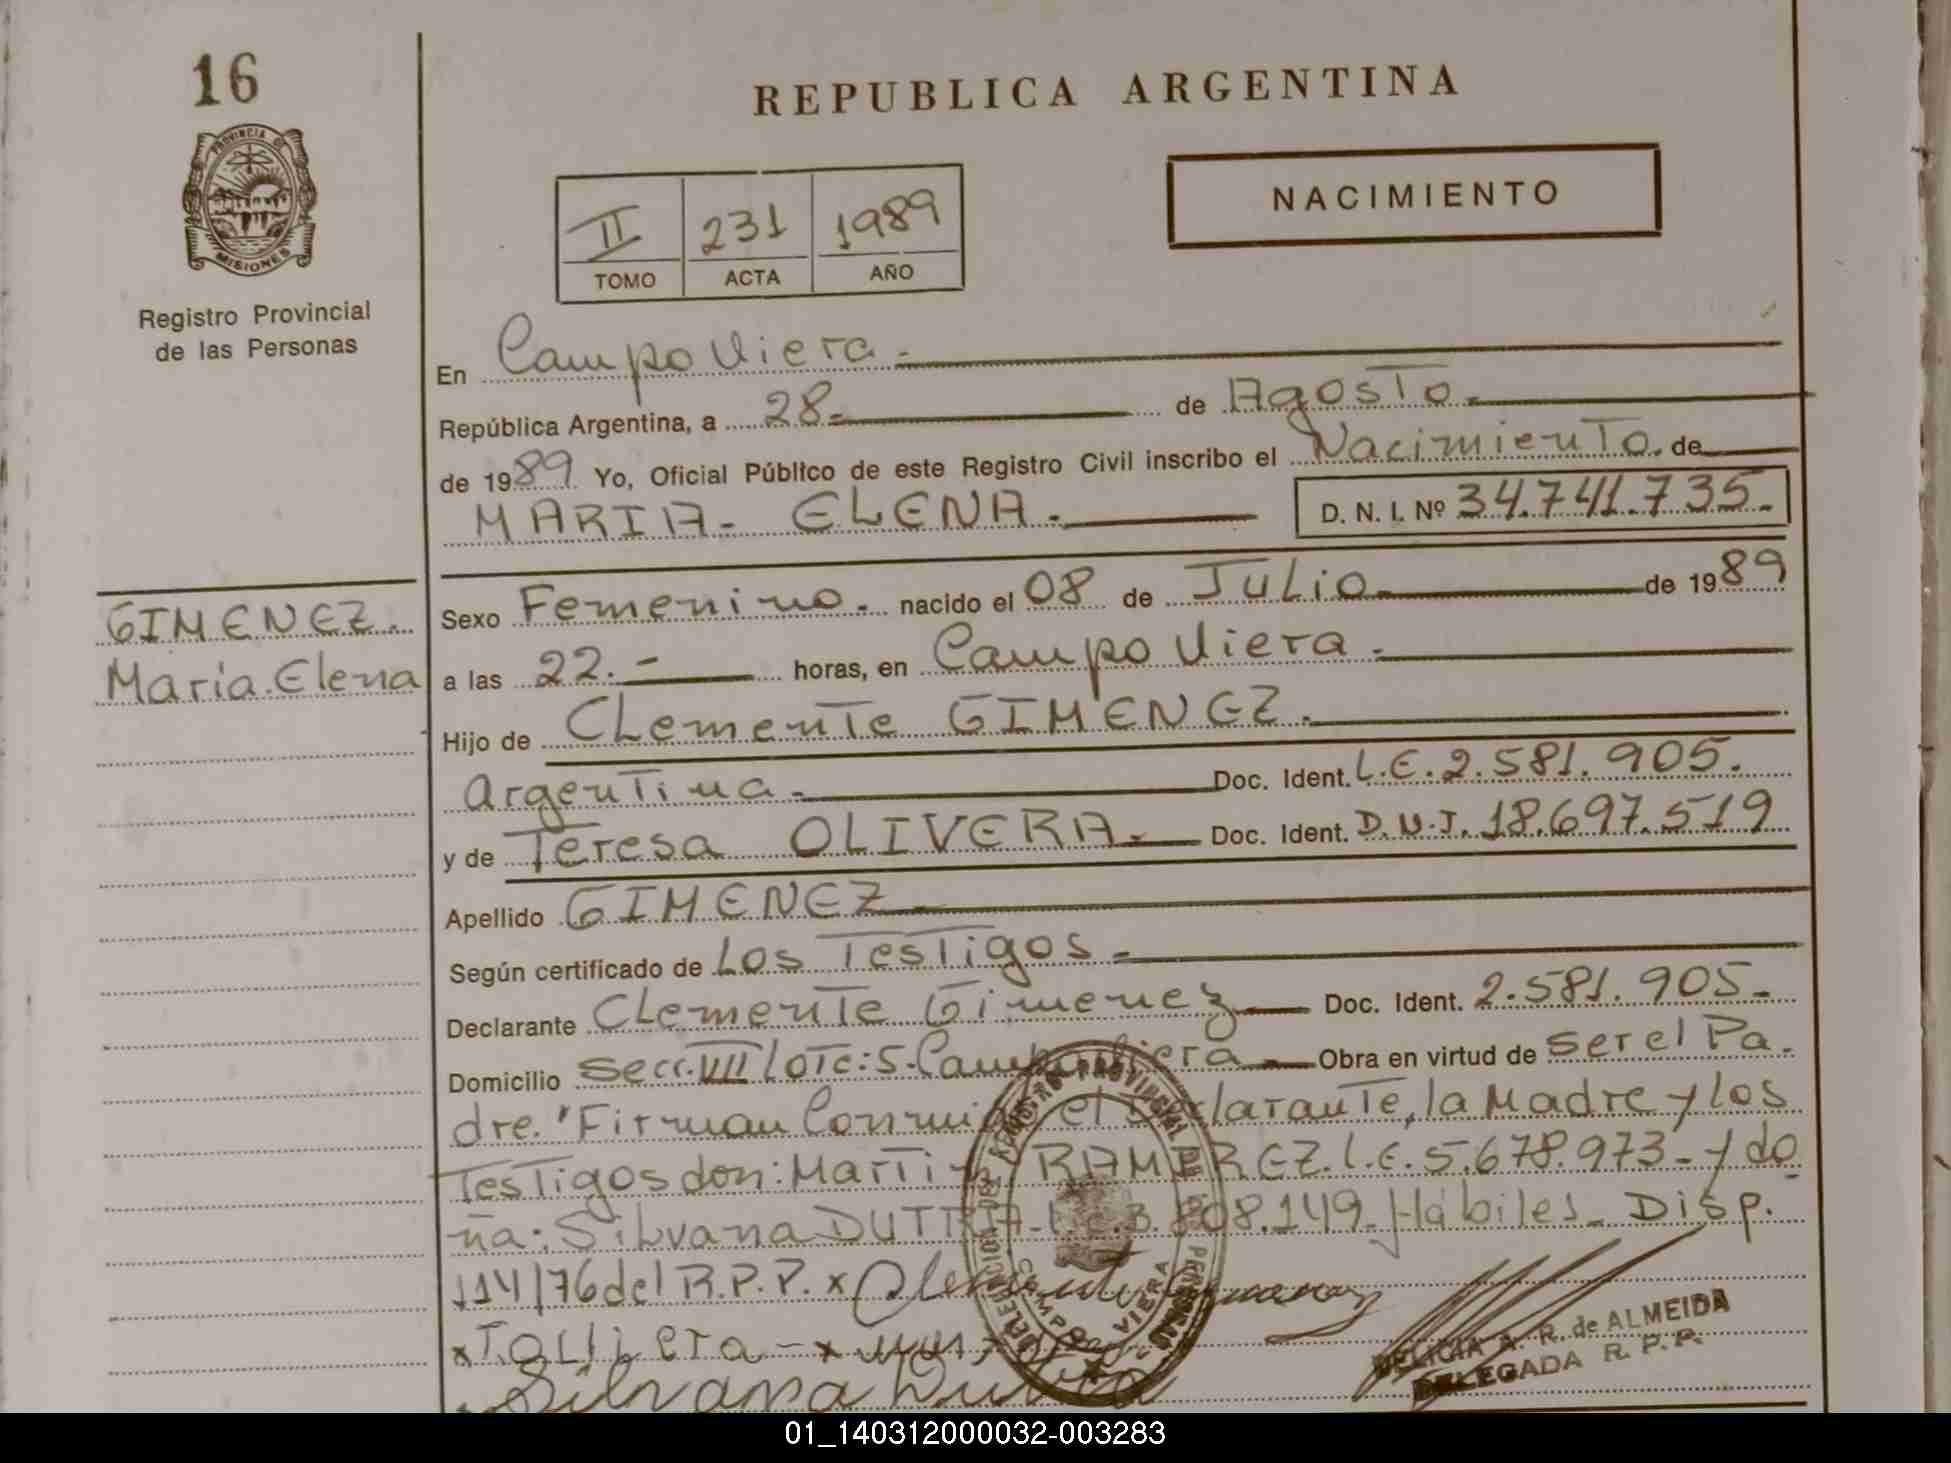 16
PROVINCIA DE
MISIONES
Registro Provincial
de las Personas
REPUBLICA ARGENTINA
NACIMIENTO
II 231 1989
TOMO ACTA AÑO
En Campo Viera.-
República Argentina, a 28.- de Agosto.-
de 1989 Yo, Oficial Público de este Registro Civil inscribo el Nacimiento. de
MARIA- ELENA.- D. N. I. Nº 34.741.735.-
GIMENEZ.
Maria.Elena
Sexo Femenino.- nacido el 08 de Julio.- de 1989
a las 22.- horas, en Campo Viera.-
Hijo de Clemente GIMENEZ.-
Argentina.- Doc. Ident. L.E.2.581.905.
y de Teresa OLIVERA.- Doc. Ident. D.N.I. 18.697.519
Apellido GIMENEZ.-
Según certificado de Los Testigos.-
Declarante Clemente Gimenez.- Doc. Ident. 2.581.905.-
Domicilio secc.VII Lote:5-Campo Viera.- Obra en virtud de ser el Pa-
dre. Firman Conmigo el declarante, la Madre y los
Testigos don: Martin RAMIREZ. L.E.5.678.973- y do
ña: Silvana DUTRA- 808.149. Hábiles- Disp.
114/76 del R.P.P. x Clemente
x T.OLIVERA - x
Silvana Dutra
REGISTRO PROVINCIAL DE LAS PERSONAS
DELEGACION
CAMPO VIERA
DELICIA A. R. de ALMEIDA
DELEGADA R. P. P.
01_140312000032-003283